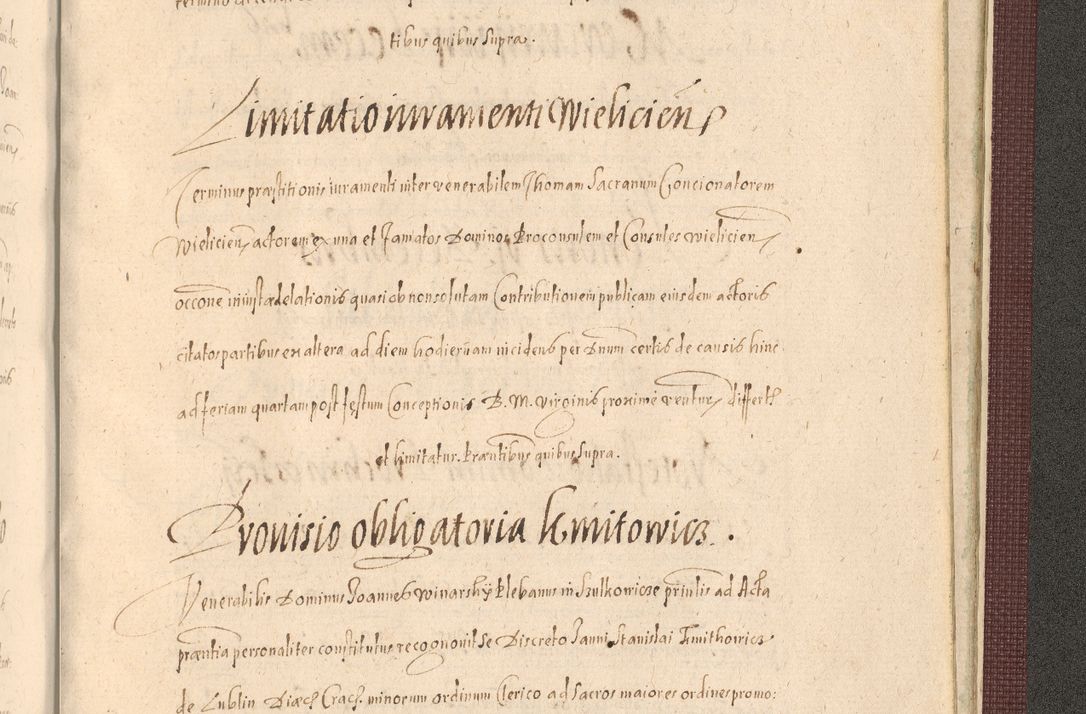 tibus quibus supra.
Limitatio iuramenti Wielicien
Terminus præstitionis iuramenti inter venerabilem Thomam Sacranum Concionatorem
Wielicien actorem ex una et famatos Dominos Proconsulem et Consules Wielicien
occone iniustæ delationis quasi ob non solutam Contributionem publicam eiusdem actoris
citatos partibus ex altera ad diem hodiernam incidens per Dnum certis de causis hinc
ad feriam quartam post festum Conceptionis B. M. Virginis proxime ventur differtr
et limitatur. Præntibus quibus supra.
Provisio obligatoria Kmitowicz.
Venerabilis Dominus Joannes Winarsky Plebanus in Szulkowicze prinlis ad Acta
præntia personaliter constitutus recognovit se Discreto Janni Stanislai Kmithowicz
de Lublin Diæc Crac minorum ordinum Clerico ad sacros maiores ordines promo: